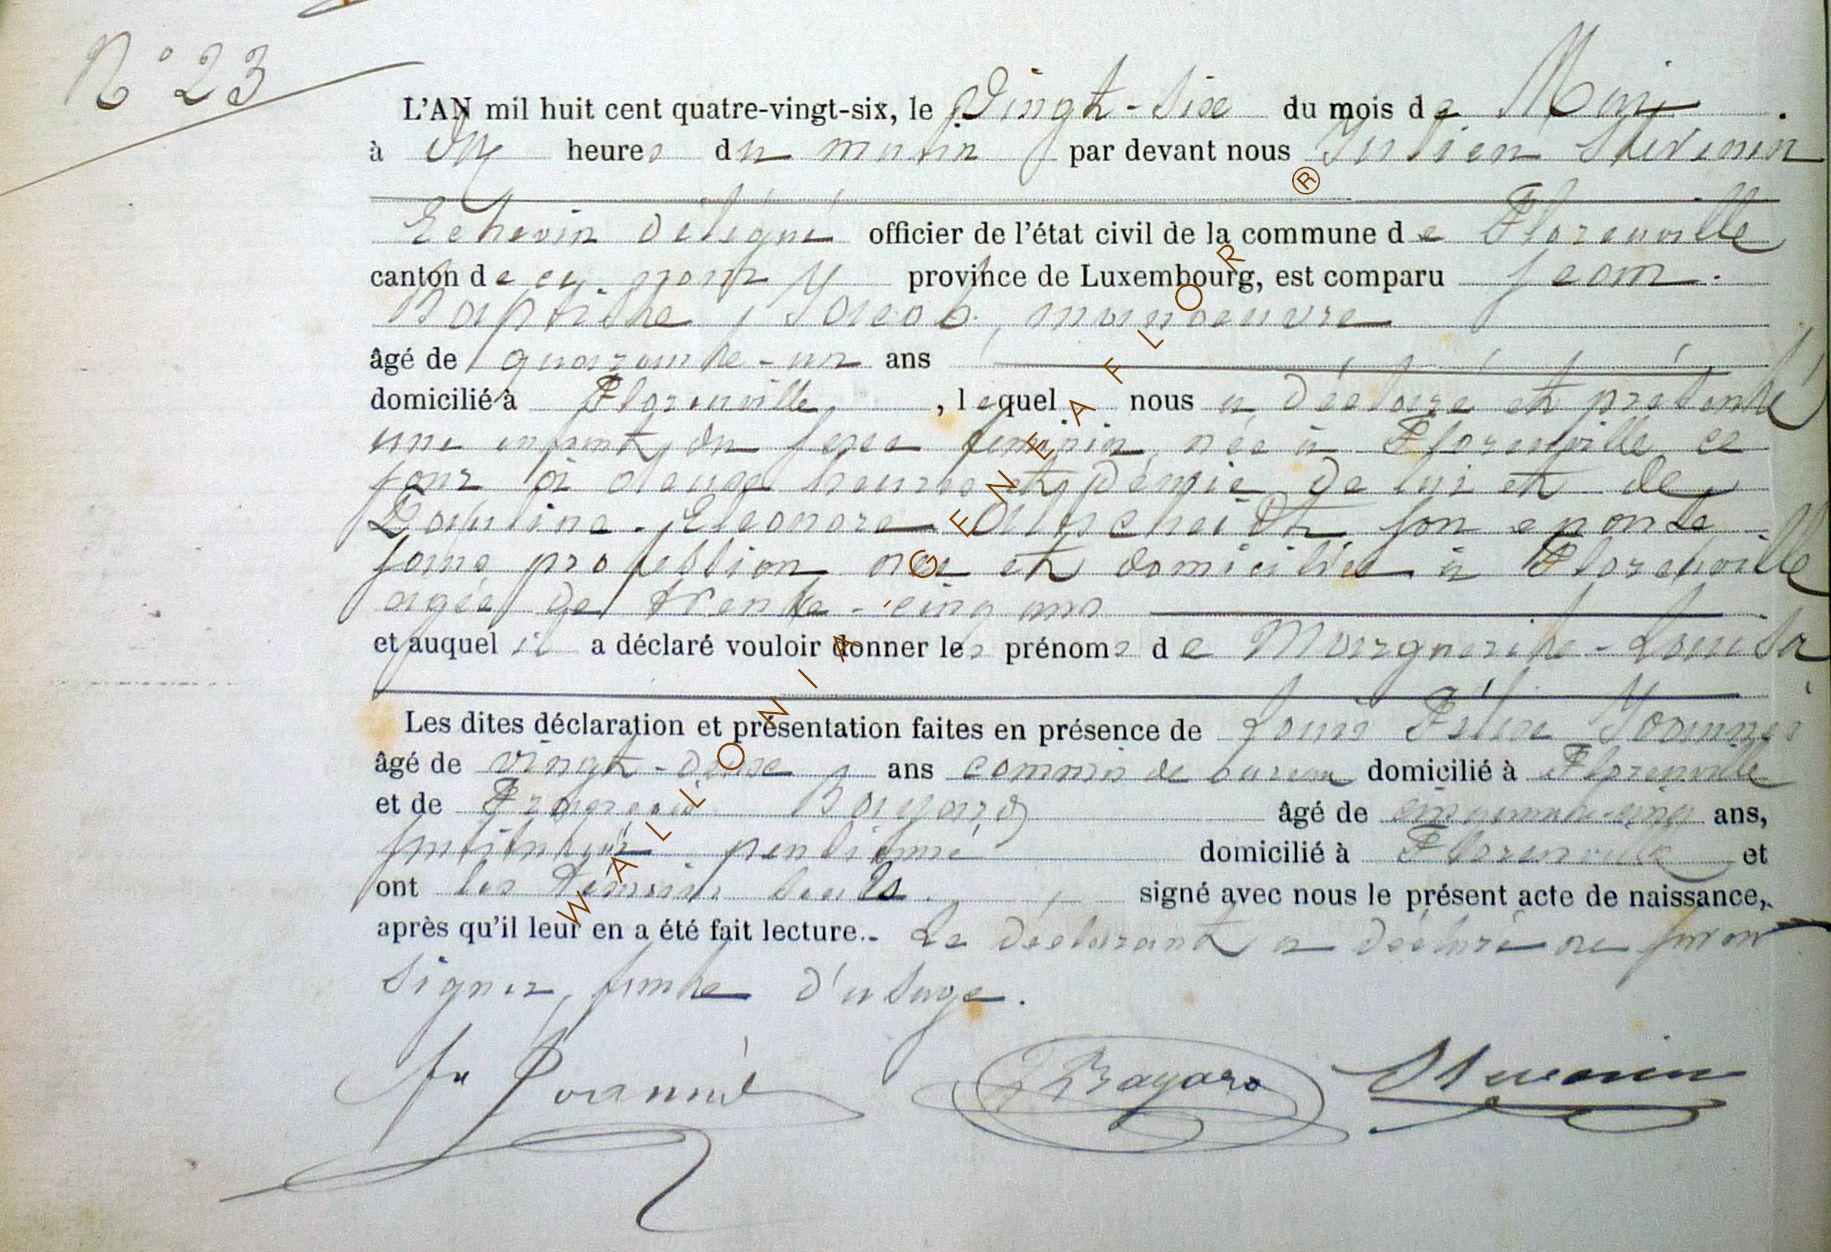 N° 23
L'AN mil huit cent quatre-vingt-six, le vingt-six du mois de Mai
à dix heures du matin par devant nous Julien Thévenin
Echevin délégué officier de l'état civil de la commune de Florenville
canton de province de Luxembourg, est comparu Jean
Baptiste Jacob, manoeuvre
âgé de quarante-un ans
domicilié à Florenville, lequel nous a déclaré et présenté
une enfant du sexe féminin née à Florenville ce
jour à heures et de lui et de
Pauline Eléonore son épouse
sans profession née et domiciliée à Florenville
agée de trente-cinq ans
et auquel il a déclaré vouloir donner les prénoms de Marguerite-Louisa
Les dites déclaration et présentation faites en présence de Louis Félix
âgé de vingt-douse ans commis de bureau domicilié à Florenville
et de François Bayard âgé de cinquante-cinq ans,
instituteur pensionné domicilié à Florenville et
ont les témoins seuls signé avec nous le présent acte de naissance,
après qu'il leur en a été fait lecture. Le déclarant a déclaré ne savoir
signer, faute d'usage.
Bayard
WALLONIA GENEAFLOR ®